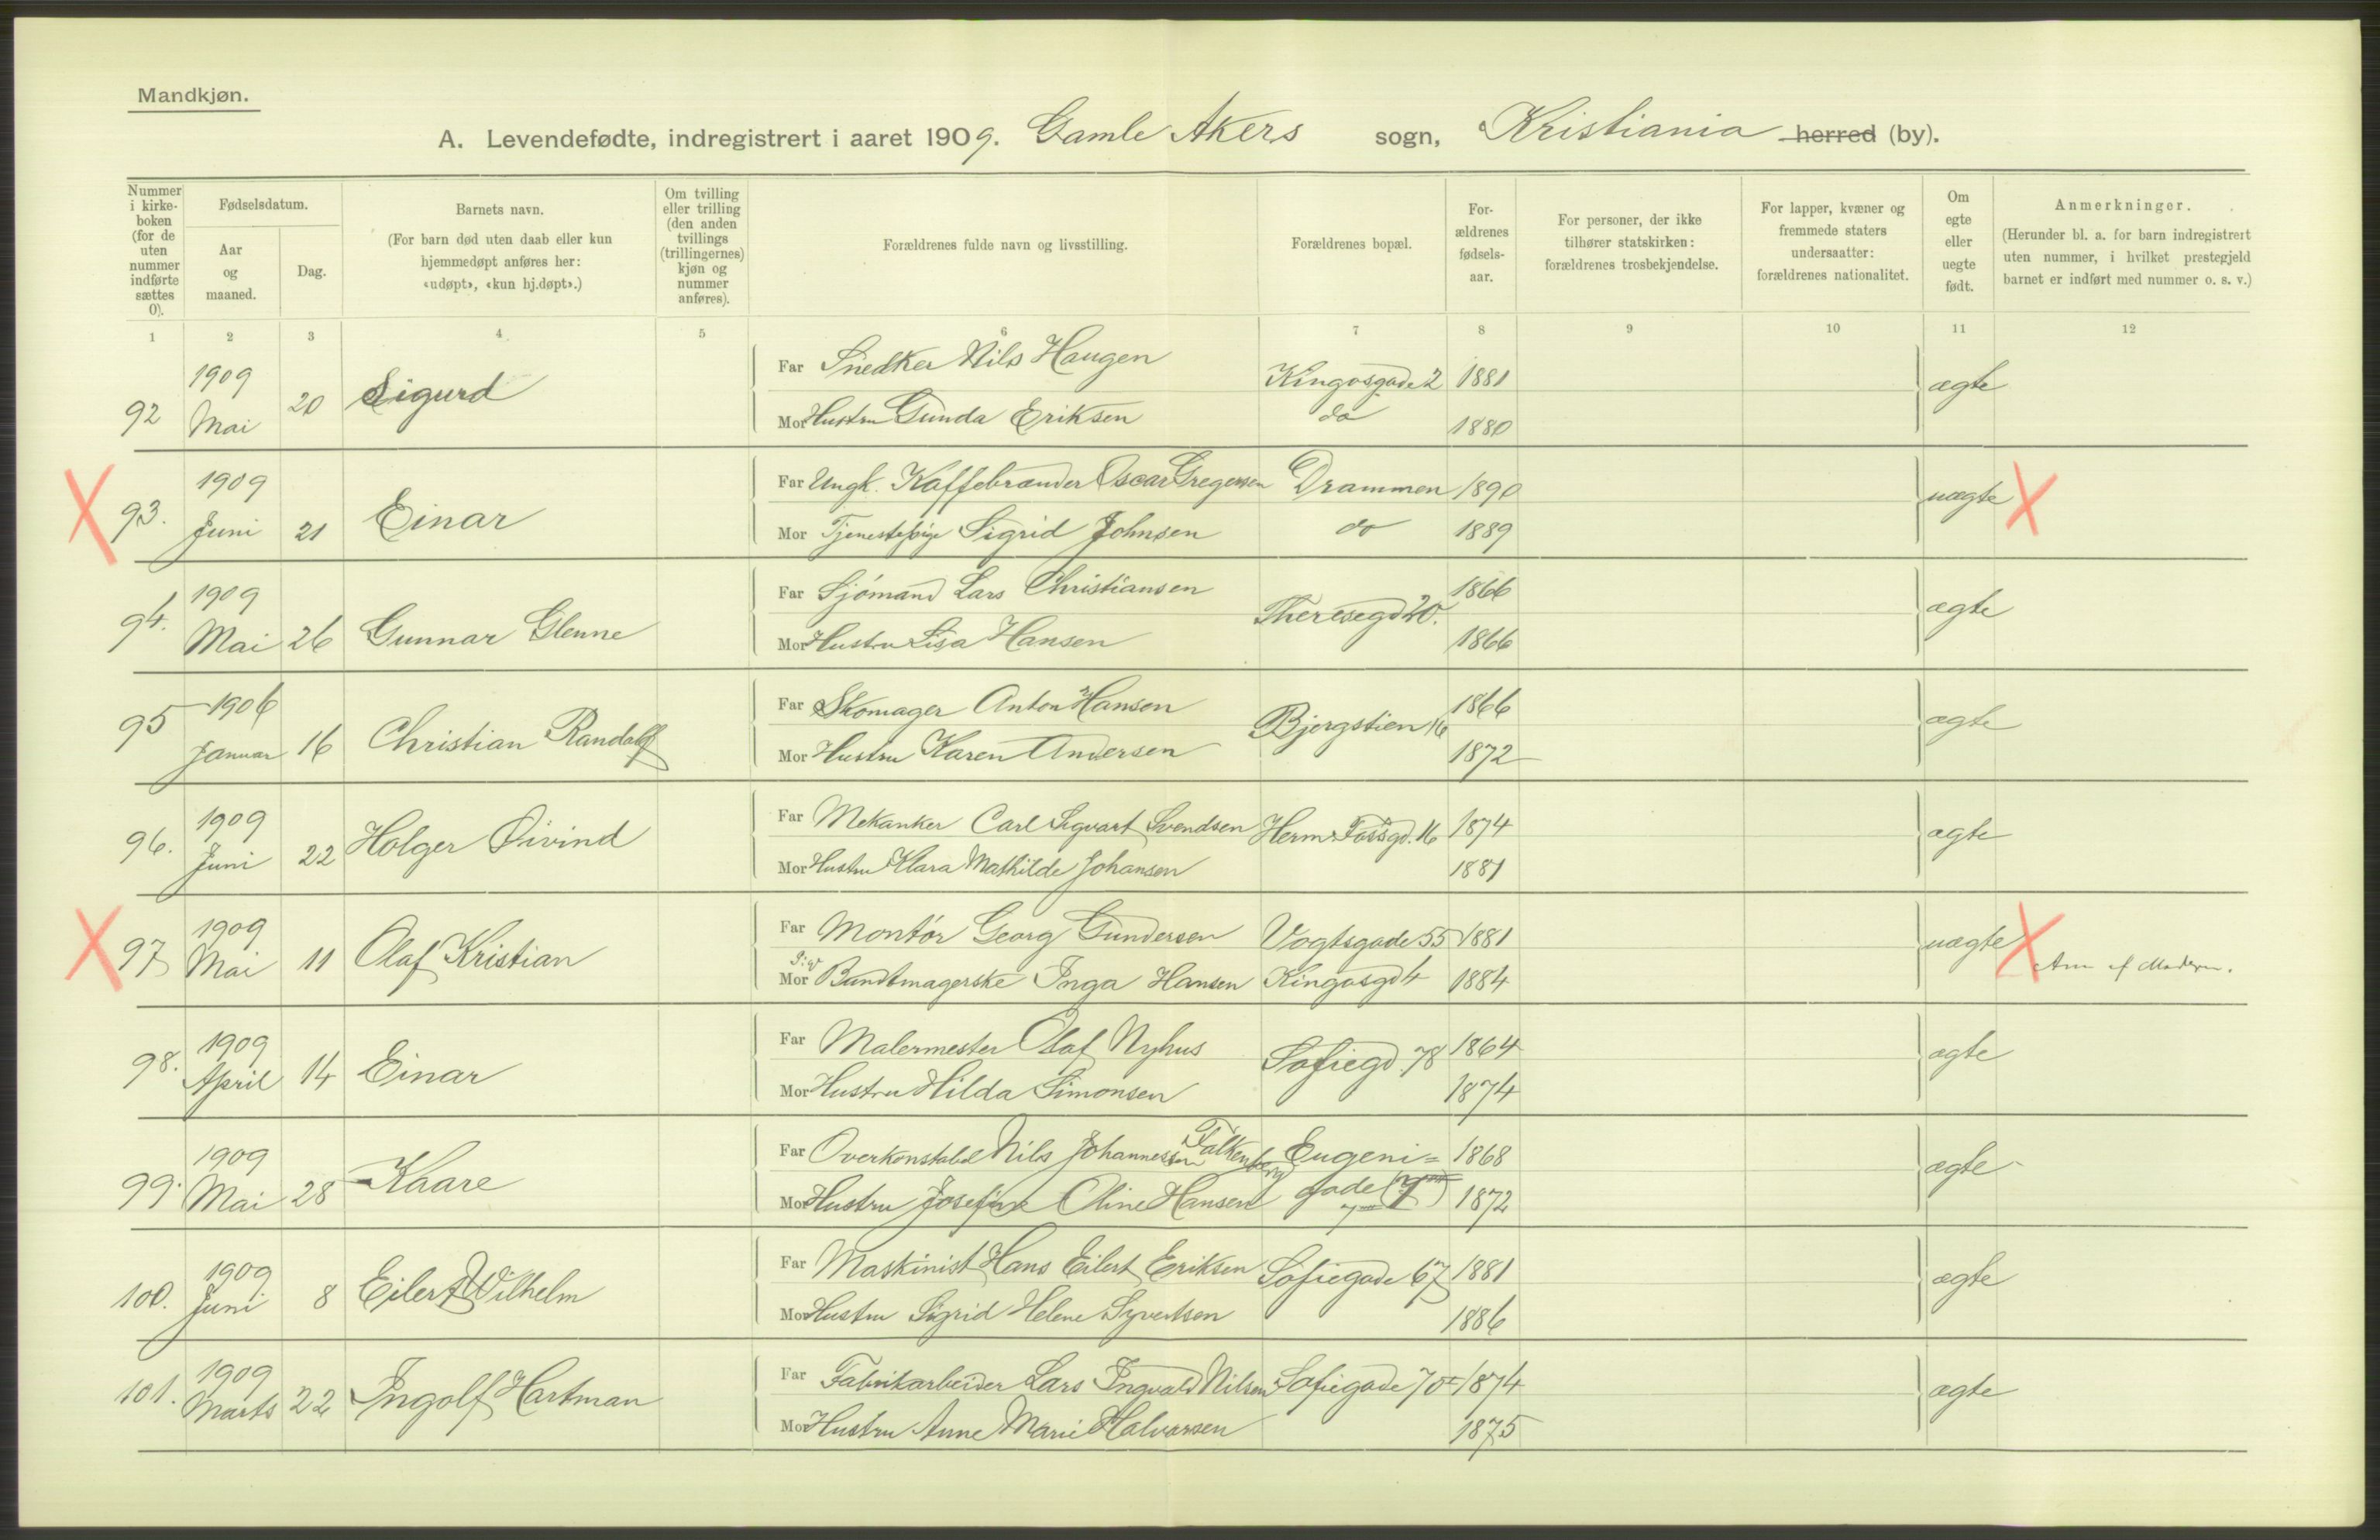 Mandkjøn.
A. Levendefødte, indregistrert i aaret 1909. Gamle Akers sogn, Kristiania herred (by).
Nummer i kirke-boken (for de uten nummer indførte sættes 0).
Fødselsdatum.
Aar og maaned.
Dag.
Barnets navn.
(For barn død uten daab eller kun hjemmedøpt anføres her: «udøpt», «kun hj.døpt».)
Om tvilling eller trilling (den anden tvillings (trillingernes) kjøn og nummer anføres).
Forældrenes fulde navn og livsstilling.
Forældrenes bopæl.
For-ældrenes fødsels-aar.
For personer, der ikke tilhører statskirken: forældrenes trosbekjendelse.
For lapper, kvæner og fremmede staters undersaatter: forældrenes nationalitet.
Om egte eller uegte født.
Anmerkninger.
(Herunder bl. a. for barn indregistrert uten nummer, i hvilket prestegjeld barnet er indført med nummer o. s. v.)
1 2 3 4 5 6 7 8 9 10 11 12
92 1909 Mai 20 Sigurd Far Snedker Nils Haugen Kingosgade 2 1881 ægte
Mor Hustru Gunda Eriksen do 1880
X 93. 1909 Juni 21 Einar Far Ungk. Kaffebrænder Oscar Gregersen Drammen 1890 uægte X
Mor Tjenestepige Sigrid Johnsen do 1889
94. 1909 Mai 26 Gunnar Glenne Far Sjómand Lars Christiansen Theresegd 20. 1866 ægte
Mor Hustru Lisa Hansen 1866
95 1906 Januar 16 Christian Randolf Far Skomager Anton Hansen Bjergstien 16 1866 ægte
Mor Hustru Karen Andersen 1872
96. 1909 Juni 22 Holger Øivind Far Mekanker Carl Sigvart Svendsen Herm. Fossgd. 16 1874 ægte
Mor Hustru Klara Mathilde Johansen 1881
X 97 1909 Mai 11 Olaf Kristian Far Montór Georg Gundersen Vogtsgade 55 1881 uægte X
Mor Bundtmagerske Inga Hansen Kingosgd 4 1884 Anm af Moderen.
98. 1909 April 14 Einar Far Malermester Olaf Nyhus Sofiegd. 78 1864 ægte
Mor Hustru Hilda Simonsen 1874
99. 1909 Mai 28 Kaare Far Overkonstabel Nils Johannessen Falkenberg Eugeni= 1868 ægte
Mor Hustru Josefine Oline Hansen gade 7 1872
100. 1909 Juni 8 Eilert Wilhelm Far Maskinist Hans Eilert Eriksen Sofiegade 67 1881 ægte
Mor Hustru Sigrid Helene Syvertsen 1886
101. 1909 Marts 22 Ingolf Hartman Far Fabrikarbeider Lars Ingvald Nilsen Sofiegade 70 1874 ægte
Mor Hustru Anne Marie Halvorsen 1875